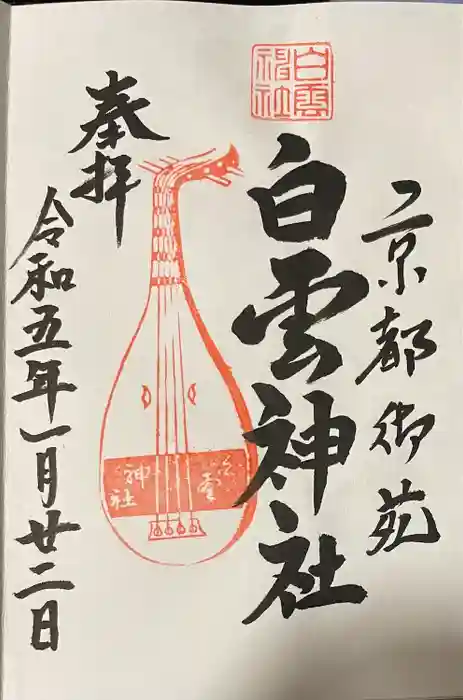 京都御苑
白雲神社
白雲神社
奉拝
白雲
神社
令和五年一月廿二日